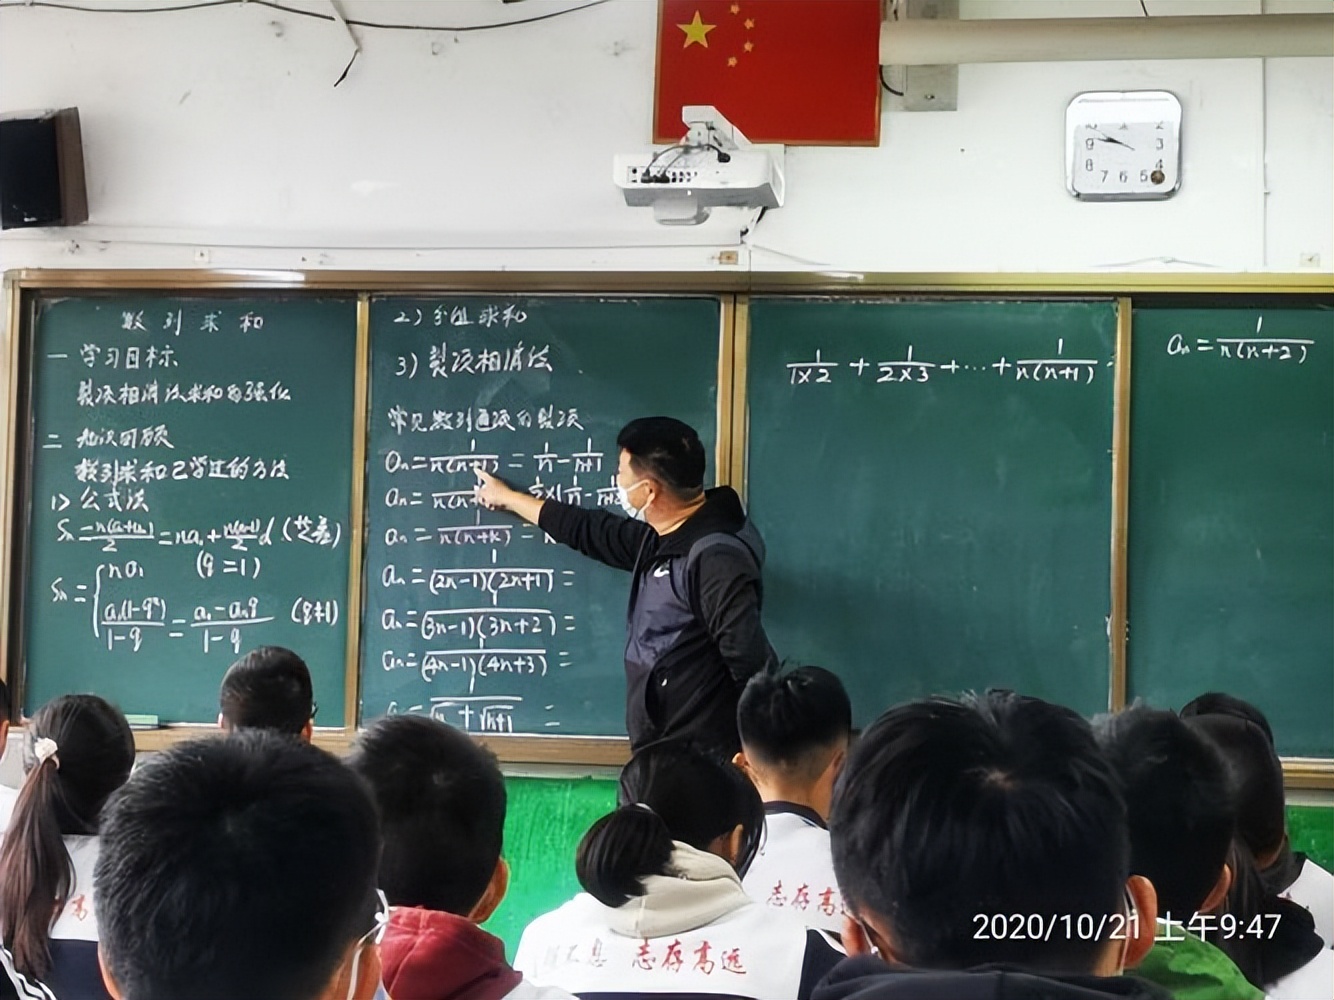 数列求和
一 学习目标
裂项相消法求和的强化
二 知识回顾
数列求和已学过的方法
1) 公式法
Sn = n(a1+an)/2 = na1 + n(n-1)/2 d (等差)
Sn = { na1 (q=1)
a1(1-q^n)/1-q = a1-anq/1-q (q≠1)
2) 分组求和
3) 裂项相消法
常见数列通项的裂项
an = 1/n(n+1) = 1/n - 1/n+1
an = 1/n(n+ 1/2×(1/n - 1/n+2
an = 1/n(n+k) =
an = 1/(2n-1)(2n+1) =
an = 1/(3n-1)(3n+2) =
an = 1/(4n-1)(4n+3) =
1/√n + √n+1 =
1/1×2 + 1/2×3 + ··· + 1/n(n+1)
an = 1/n(n+2)
2
9 3
8 4
7 6 5
志存高
志存高远
2020/10/21 上午9:47